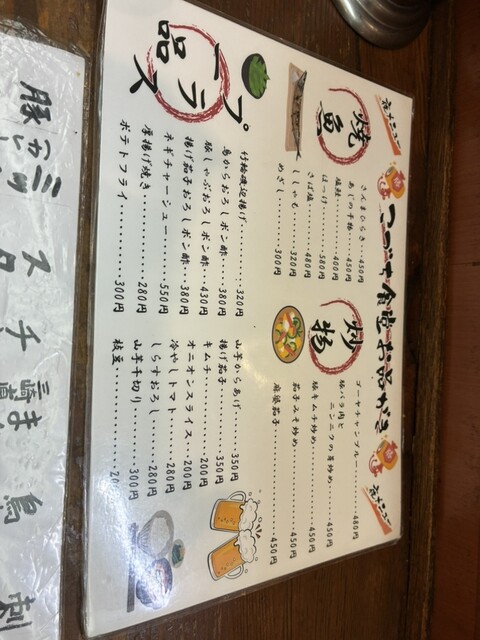 夜メニュー
こづち食堂 お品がき
夜メニュー
焼魚
さんまひらき・・・450円
あじの干物・・・・450円
塩鮭・・・・・・・400円
ほっけ・・・・・・580円
さば塩・・・・・・480円
ししゃも・・・・・320円
めざし・・・・・・300円
炒物
ゴーヤチャンプルー・・・480円
豚バラ肉と
ニンニクの芽炒め・・・・450円
豚キムチ炒め・・・・・・450円
茄子みそ炒め・・・・・・450円
麻婆茄子・・・・・・・・450円
プラス一品
竹輪磯辺揚げ・・・・・・320円
鳥からおろしポン酢・・・380円
豚しゃぶおろしポン酢・・430円
揚げ茄子おろしポン酢・・380円
ネギチャーシュー・・・・550円
厚揚げ焼き・・・・・・・280円
ポテトフライ・・・・・・300円
山芋からあげ・・・・350円
揚げ茄子・・・・・・350円
キムチ・・・・・・・200円
オニオンスライス・・200円
冷やしトマト・・・・280円
しらすおろし・・・・280円
山芋千切り・・・・・300円
枝豆・・・・・・・・20